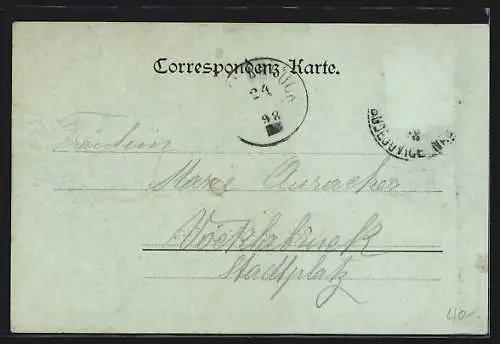 Correspondenz Karte.
24
98
BUDEJOVICE
Fräulein
Marie Auracher
Vöcklabruck
Stadtplatz
40